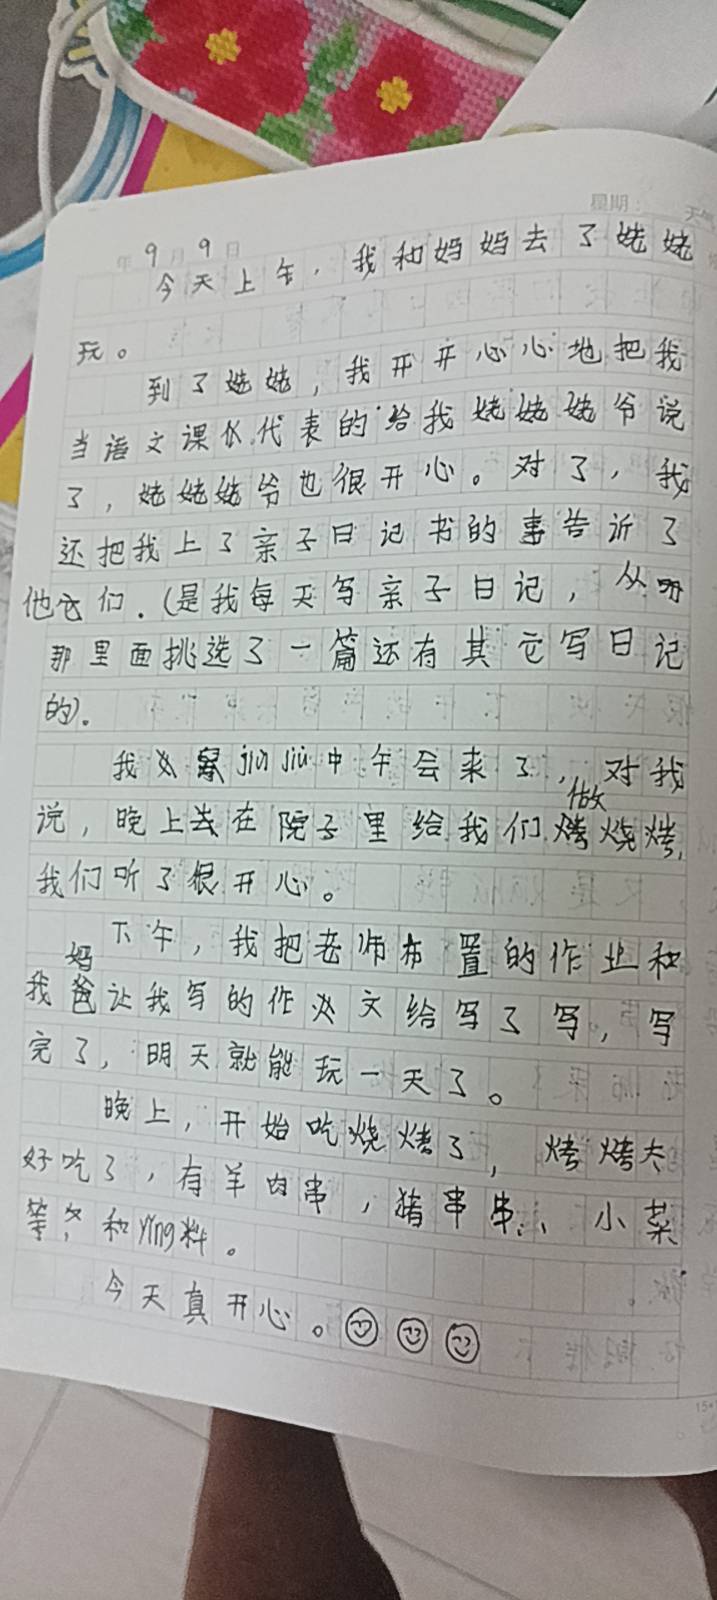 星期： 天气
年 9 月 9 日
今天上午，我和妈妈去了姥姥
玩。
到了姥姥，我开开心心地把我
当语文课代表的给我姥姥姥爷说
了，姥姥姥爷也很开心。对了，我
还把我上了亲子日记书的事告诉了
他们.(是我每天写亲子日记，从
那里面挑选了一篇还有其它写日记
的)。
我 jiù jiu 中午会来了，对我
说，晚上去在院子里给我们做烧烤,
我们听了很开心。
下午，我把老师布置的作业和
我妈让我写的作文给写了写，写
完了，明天就能玩一天了。
晚上，开始吃烧烤了，烤烤太
好吃了，有羊肉串，猪串串、小菜
等，和yǐng料。
今天真开心。